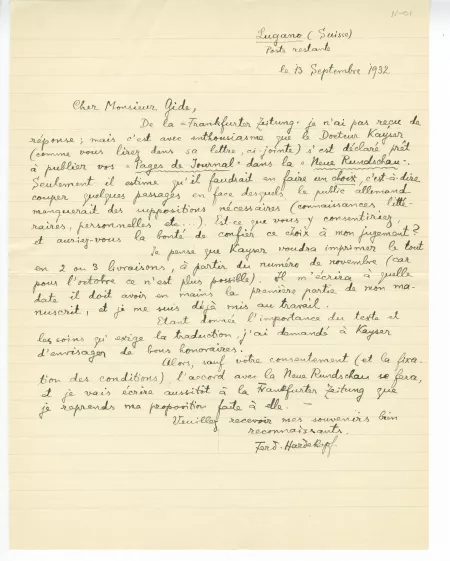 Lugano (Suisse)
Poste restante
le 13 Septembre 1932
Cher Monsieur Gide,
De la «Frankfurter Zeitung» je n'ai pas reçu de
réponse; mais c'est avec enthousiasme que le Docteur Kayser
(comme vous lirez dans sa lettre, ci-jointe) s'est déclaré prêt
à publier vos «Pages de Journal» dans la «Neue Rundschau».
Seulement il estime qu'il faudrait en faire un choix, c'est-à-dire
couper quelques passages en face desquels le public allemand
manquerait des suppositions nécessaires (connaissances litté-
raires, personnelles etc...). Est-ce que vous y consentiriez,
et auriez-vous la bonté de confier ce choix à mon jugement?
Je pense que Kayser voudra imprimer le tout
en 2 ou 3 livraisons, à partir du numéro de novembre (car
pour l'octobre ce n'est plus possible). Il m'écrira à quelle
date il doit avoir en mains la première partie de mon ma-
nuscrit, et je me suis déjà mis au travail.
Etant donnée l'importance du texte et
les soins qu'exige la traduction, j'ai demandé à Kayser
d'envisager de bons honoraires.
Alors, sauf votre consentement (et la fixa-
tion des conditions), l'accord avec la Neue Rundschau se fera,
et je vais écrire aussitôt à la Frankfurter Zeitung que
je reprends ma proposition faite à elle. —
Veuillez recevoir mes souvenirs bien
reconnaissants.
Ferd. Hardekopf.